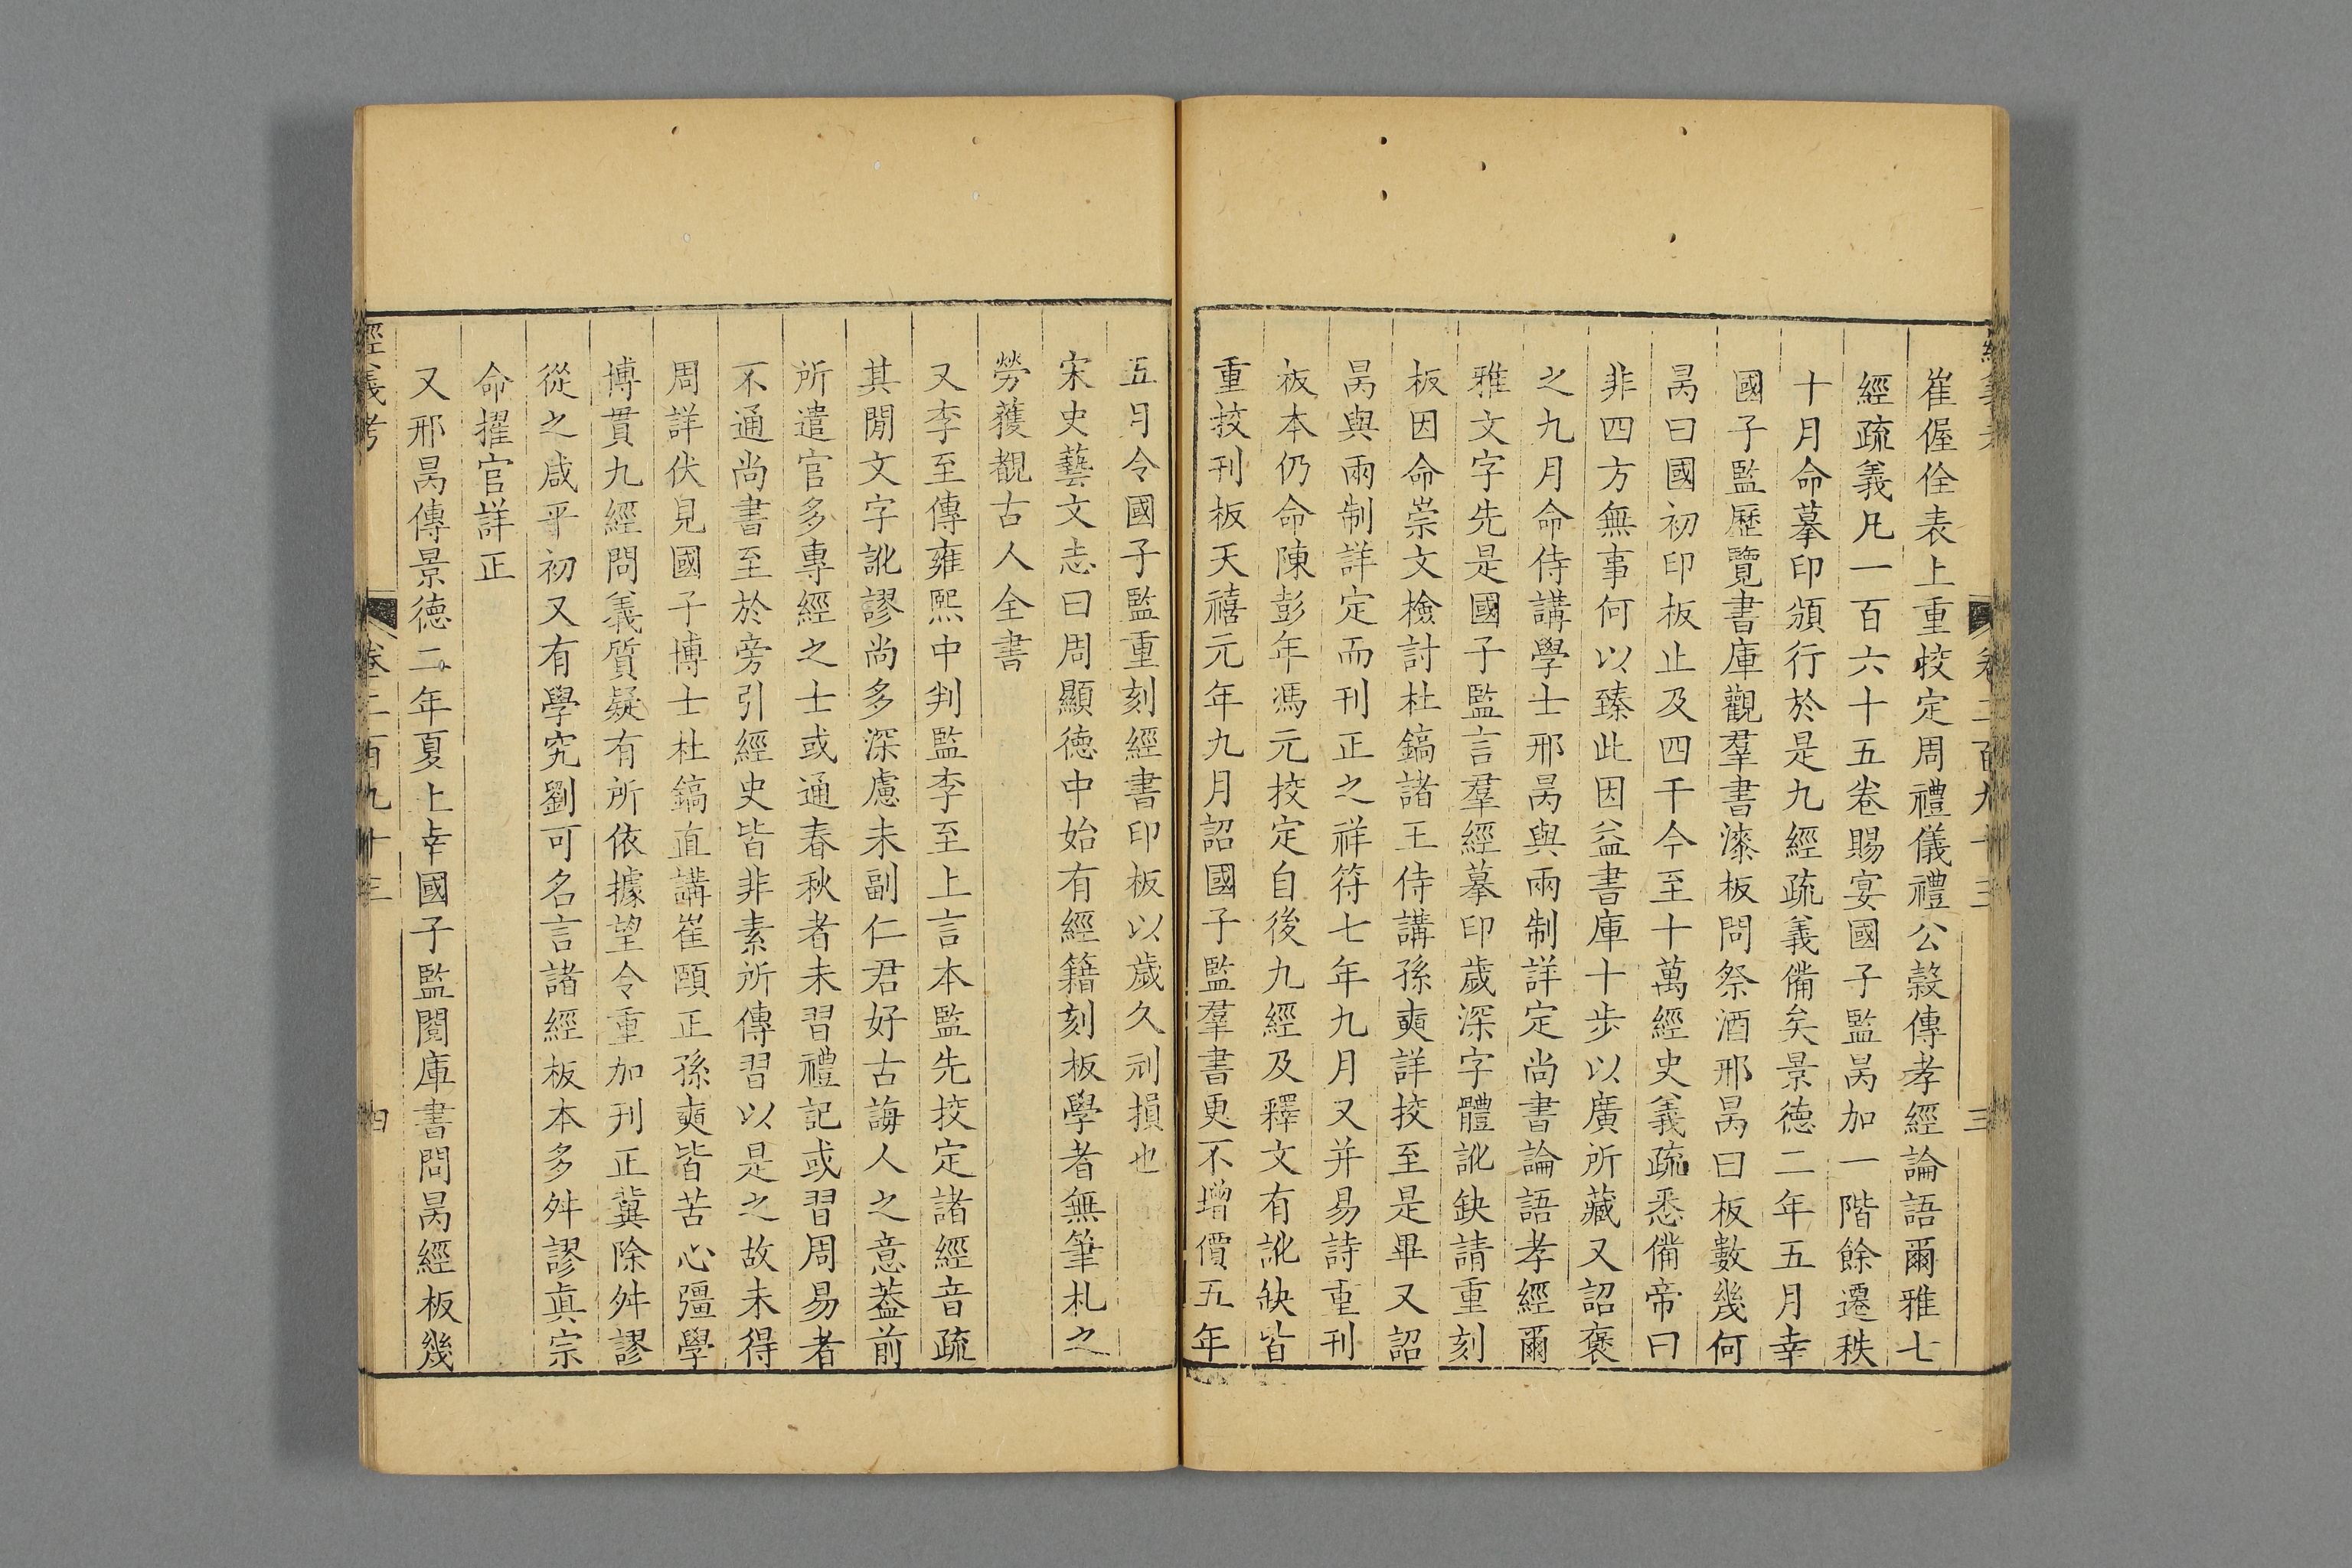 崔偓佺表上重校定周禮儀禮公穀傳孝經論語爾雅七
經疏義凡一百六十五卷賜宴國子監昺加一階餘遷秩
十月命摹印頒行於是九經疏義備矣景德二年五月幸
國子監歷覽書庫觀羣書漆板問祭酒邢昺曰板數幾何
昺曰國初印板止及四千今至十萬經史義疏悉備帝曰
非四方無事何以臻此因益書庫十步以廣所藏又詔褒
之九月命侍講學士邢昺與兩制詳定尚書論語孝經爾
雅文字先是國子監言羣經摹印歲深字體訛缺請重刻
板因命崇文檢討杜鎬諸王侍講孫奭詳挍至是畢又詔
昺與兩制詳定而刊正之祥符七年九月又并易詩重刊
板本仍命陳彭年馮元挍定自後九經及釋文有訛缺皆
重挍刊板天禧元年九月詔國子監羣書更不增價五年
五月令國子監重刻經書印板以歲久刓損也
宋史藝文志曰周顯德中始有經籍刻板學者無筆札之
勞獲覩古人全書
又李至傳雍熙中判監李至上言本監先挍定諸經音疏
其閒文字訛謬尚多深慮未副仁君好古誨人之意蓋前
所遣官多專經之士或通春秋者未習禮記或習周易者
不通尚書至於旁引經史皆非素所傳習以是之故未得
周詳伏見國子博士杜鎬直講崔頤正孫奭皆苦心彊學
博貫九經問義質疑有所依據望令重加刊正冀除舛謬
從之咸平初又有學究劉可名言諸經板本多舛謬眞宗
命擢官詳正
又邢昺傳景德二年夏上幸國子監閱庫書問昺經板幾
經義考
卷二百九十三
四